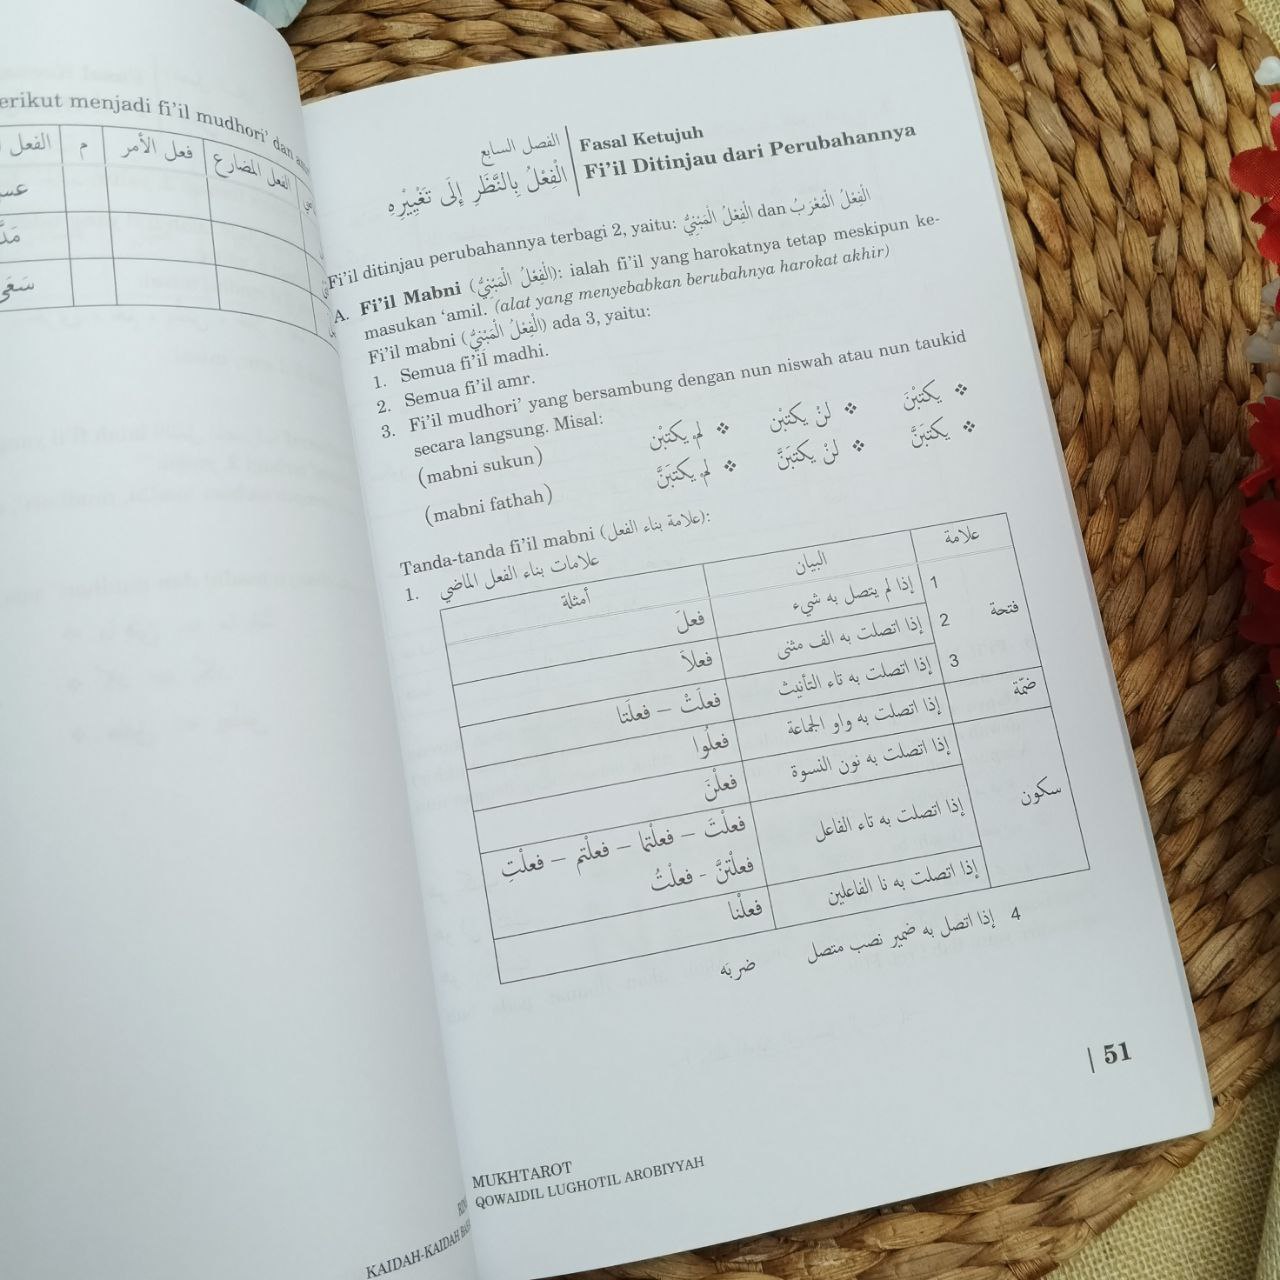 erikut menjadi fi'il mudhori' dan
م | فعل الأمر | الفعل المضارع
مَدَّ
سَعَى
KAIDAH-KAIDAH
الفصل السابع | Fasal Ketujuh
الْفِعْلُ بِالنَّظَرِ إِلَى تَغْيِيْرِهِ | Fi'il Ditinjau dari Perubahannya
Fi'il ditinjau perubahannya terbagi 2, yaitu: الْفِعْلُ الْمَبْنِيُّ dan الْفِعْلُ الْمُعْرَبُ
A. Fi'il Mabni (الْفِعْلُ الْمَبْنِيُّ): ialah fi'il yang harokatnya tetap meskipun ke-
masukan 'amil. (alat yang menyebabkan berubahnya harokat akhir)
Fi'il mabni (الْفِعْلُ الْمَبْنِيُّ) ada 3, yaitu:
1. Semua fi'il madhi.
2. Semua fi'il amr.
3. Fi'il mudhori' yang bersambung dengan nun niswah atau nun taukid
secara langsung. Misal:
(mabni sukun) ❖ يكتبْنَ ❖ لنْ يكتبْن ❖ لم يكتبْن
(mabni fathah) ❖ يكتبَنَّ ❖ لنْ يكتبَنَّ ❖ لم يكتبَنَّ
Tanda-tanda fi'il mabni (علامة بناء الفعل):
1. علامات بناء الفعل الماضي
علامة | البيان | أمثلة
فتحة | 1 إذا لم يتصل به شيء | فعلَ
2 إذا اتصلت به الف مثنى | فعلاَ
3 إذا اتصلت به تاء التأنيث | فعلَتْ – فعلَتا
ضمّة | إذا اتصلت به واو الجماعة | فعلُوا
سكون | إذا اتصلت به نون النسوة | فعلْنَ
إذا اتصلت به تاء الفاعل | فعلْتَ – فعلْتما – فعلْتم – فعلْتِ
فعلْتنَّ - فعلْتُ
إذا اتصلت به نا الفاعلين | فعلْنا
4 إذا اتصل به ضمير نصب متصل ضربَه
| 51
MUKHTAROT
QOWAIDIL LUGHOTIL AROBIYYAH